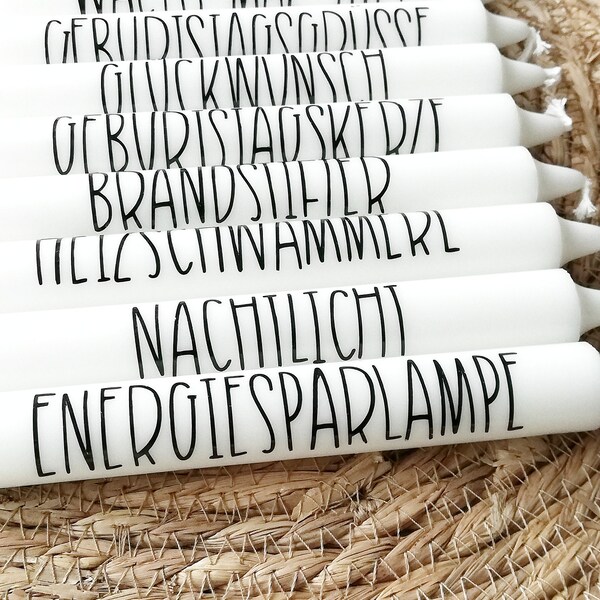 GEBURTSTAGSGRÜSSE
GLÜCKWUNSCH
GEBURTSTAGSKERZE
BRANDSTIFTER
HEIZSCHWAMMERL
NACHTLICHT
ENERGIESPARLAMPE